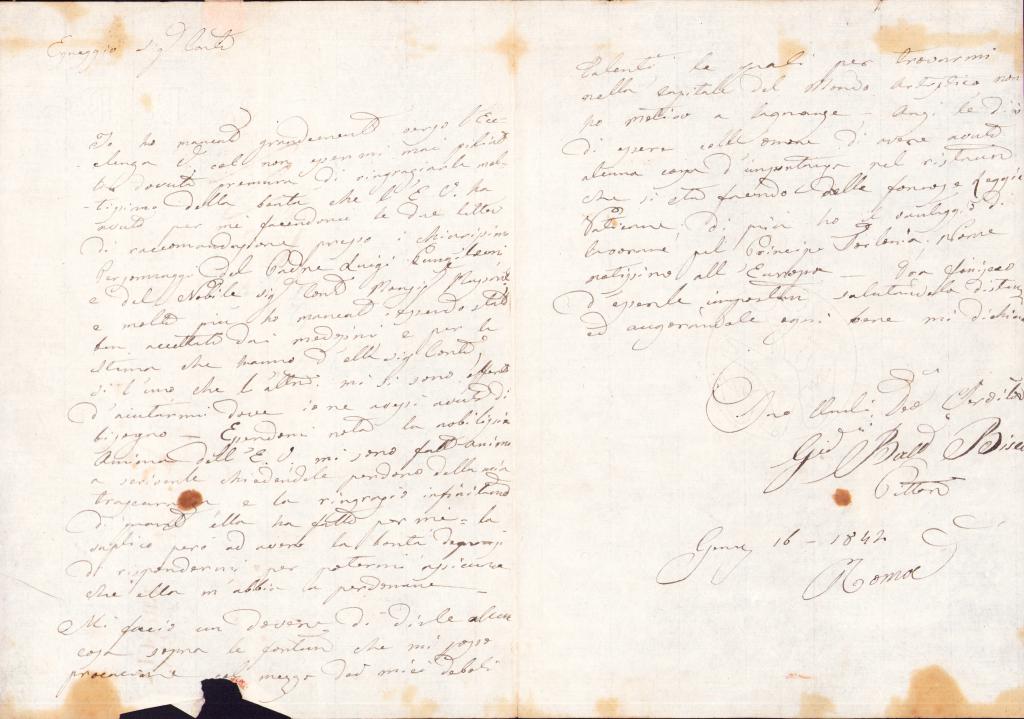 Egreggio Sig.r Conte
Io ho mancato grandemente verso l'Ecc
elenza V. col non essermi mai
dovuta premura di ringraziarla mol
tissimo della bontà che l'E.V. ha
avuto per me facendomi le due lettere
di raccomandazione presso i chiarissimi
Personaggi del Padre Luigi Pungileoni
e del Nobile Sig.r Conte
e molto più ho mancato essendo stato
ben accettato dai medesimi e per la
stima che hanno d'ella Sig. Conte
sì l'uno che l'altro mi si sono offerti
d'aiutarmi dove io ne avessi avuto di
bisogno – Essendomi nota la nobilissima
Anima dell'E.V. mi sono fatto animo
a scriverle chiedendole perdono della mia
trascuranza e la ringrazio infinitamente
di quanto ella ha fatto per me – la
suplico però ad avere la bontà
di rispondermi per potermi assicurare
che ella m'abbia perdonare –
Mi faccio un dovere di dirle alcuna
cosa sopra le fortune che mi posso
procacciare col mezzo dei miei deboli
talenti le quali per trovarmi
nella Capitale del Mondo Artistico non
ho motivo a lagnarmi – Anzi le dirò
di essere coll'onore di avere avuto
alcuna cosa d'importanza pel ristauro
che si sta facendo delle Logge
Vaticane, di più ho il vantaggio di
lavorare pel Principe Torlonia, Nome
notissimo all'Europa – Ora finisco
d'esserle importuno salutandola distin
ed augurandole ogni bene mi dichiaro
Suo Umil. Dev. Servitore
Gio. Batt.
Pittore
Genn. 16 – 1842
Roma